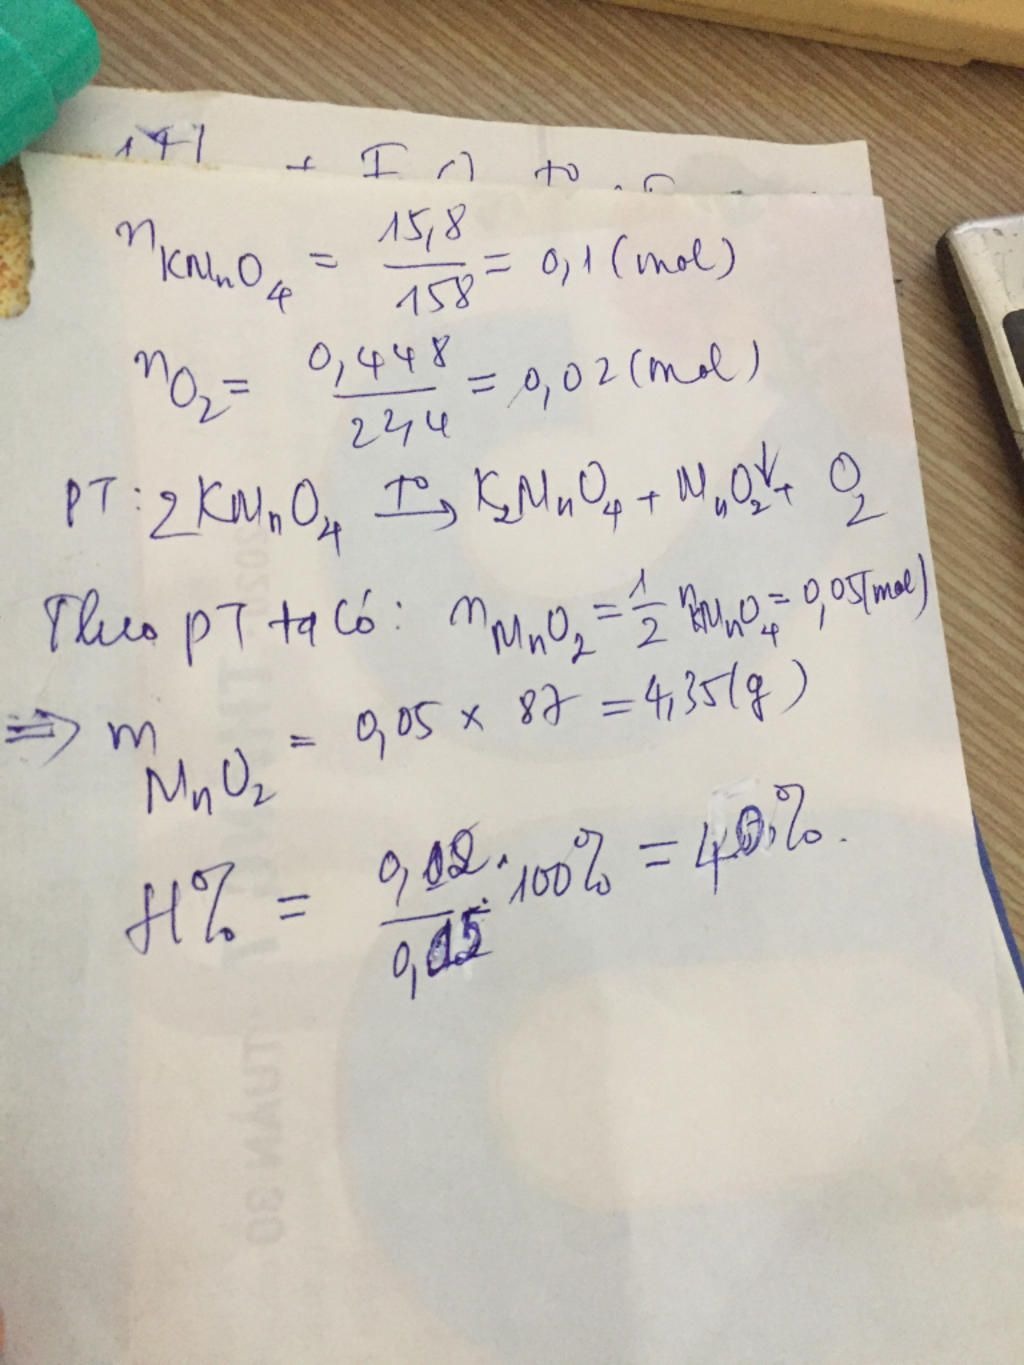 n KMnO4 = 15,8 / 158 = 0,1 (mol)
n O2 = 0,448 / 22,4 = 0,02 (mol)
PT: 2KMnO4 T° → K2MnO4 + MnO2↓ + O2
Theo PT ta có: n MnO2 = 1/2 n KMnO4 = 0,05 (mol)
=> m MnO2 = 0,05 x 87 = 4,35 (g)
H% = 0,02 / 0,05 . 100% = 40%.
TUẦN 30